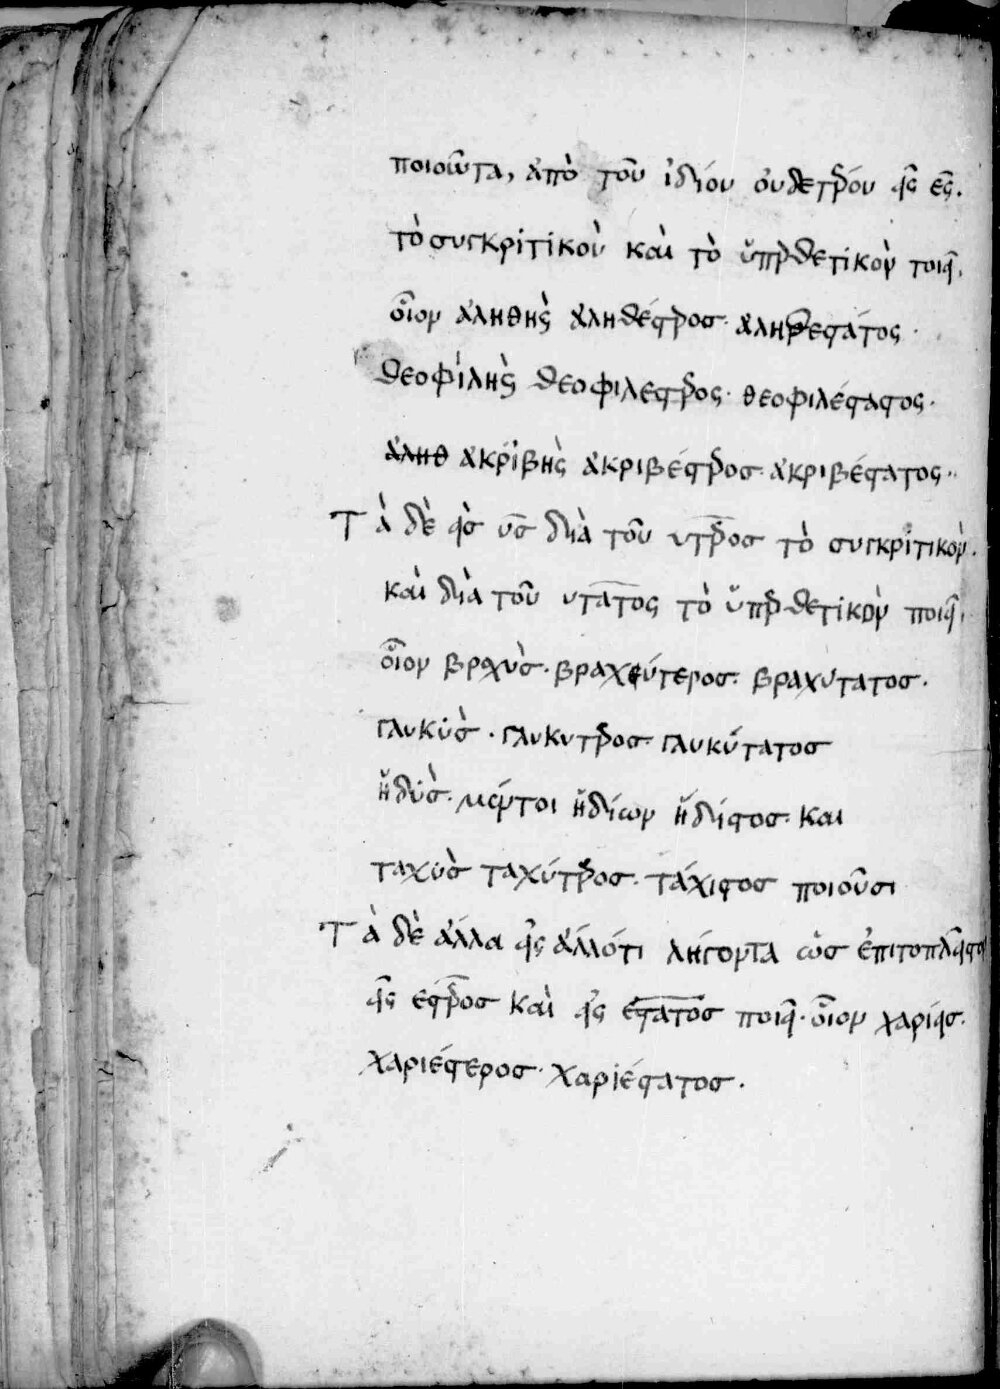 ποιοῦντα, ἀπὸ τοῦ ἰδίου οὐδετέρου εἰς ες.
τὸ συγκριτικὸν καὶ τὸ ὑπερθετικὸν ποιεῖ.
οἷον ἀληθὴς ἀληθέστερος· ἀληθέστατος·
θεοφιλὴς θεοφιλέστερος· θεοφιλέστατος·
ἀληθ ἀκριβὴς ἀκριβέστερος· ἀκριβέστατος··
Τὰ δὲ εἰς υς διὰ τοῦ υτερος τὸ συγκριτικὸν.
καὶ διὰ τοῦ υτατος τὸ ὑπερθετικὸν ποιεῖ.
οἷον βραχὺς· βραχύτερος· βραχύτατος·
γλυκὺς· γλυκύτερος· γλυκύτατος
ἡδὺς· μέντοι ἡδίων ἥδιστος· καὶ
ταχὺς ταχύτερος· τάχιστος ποιοῦσι
Τὰ δὲ ἄλλα εἰς ἄλλό τι λήγοντα ὡς ἐπιτοπλεῖστον
εἰς εστερος καὶ εἰς εστατος ποιεῖ· οἷον χαρίεις·
χαριέστερος· χαριέστατος·